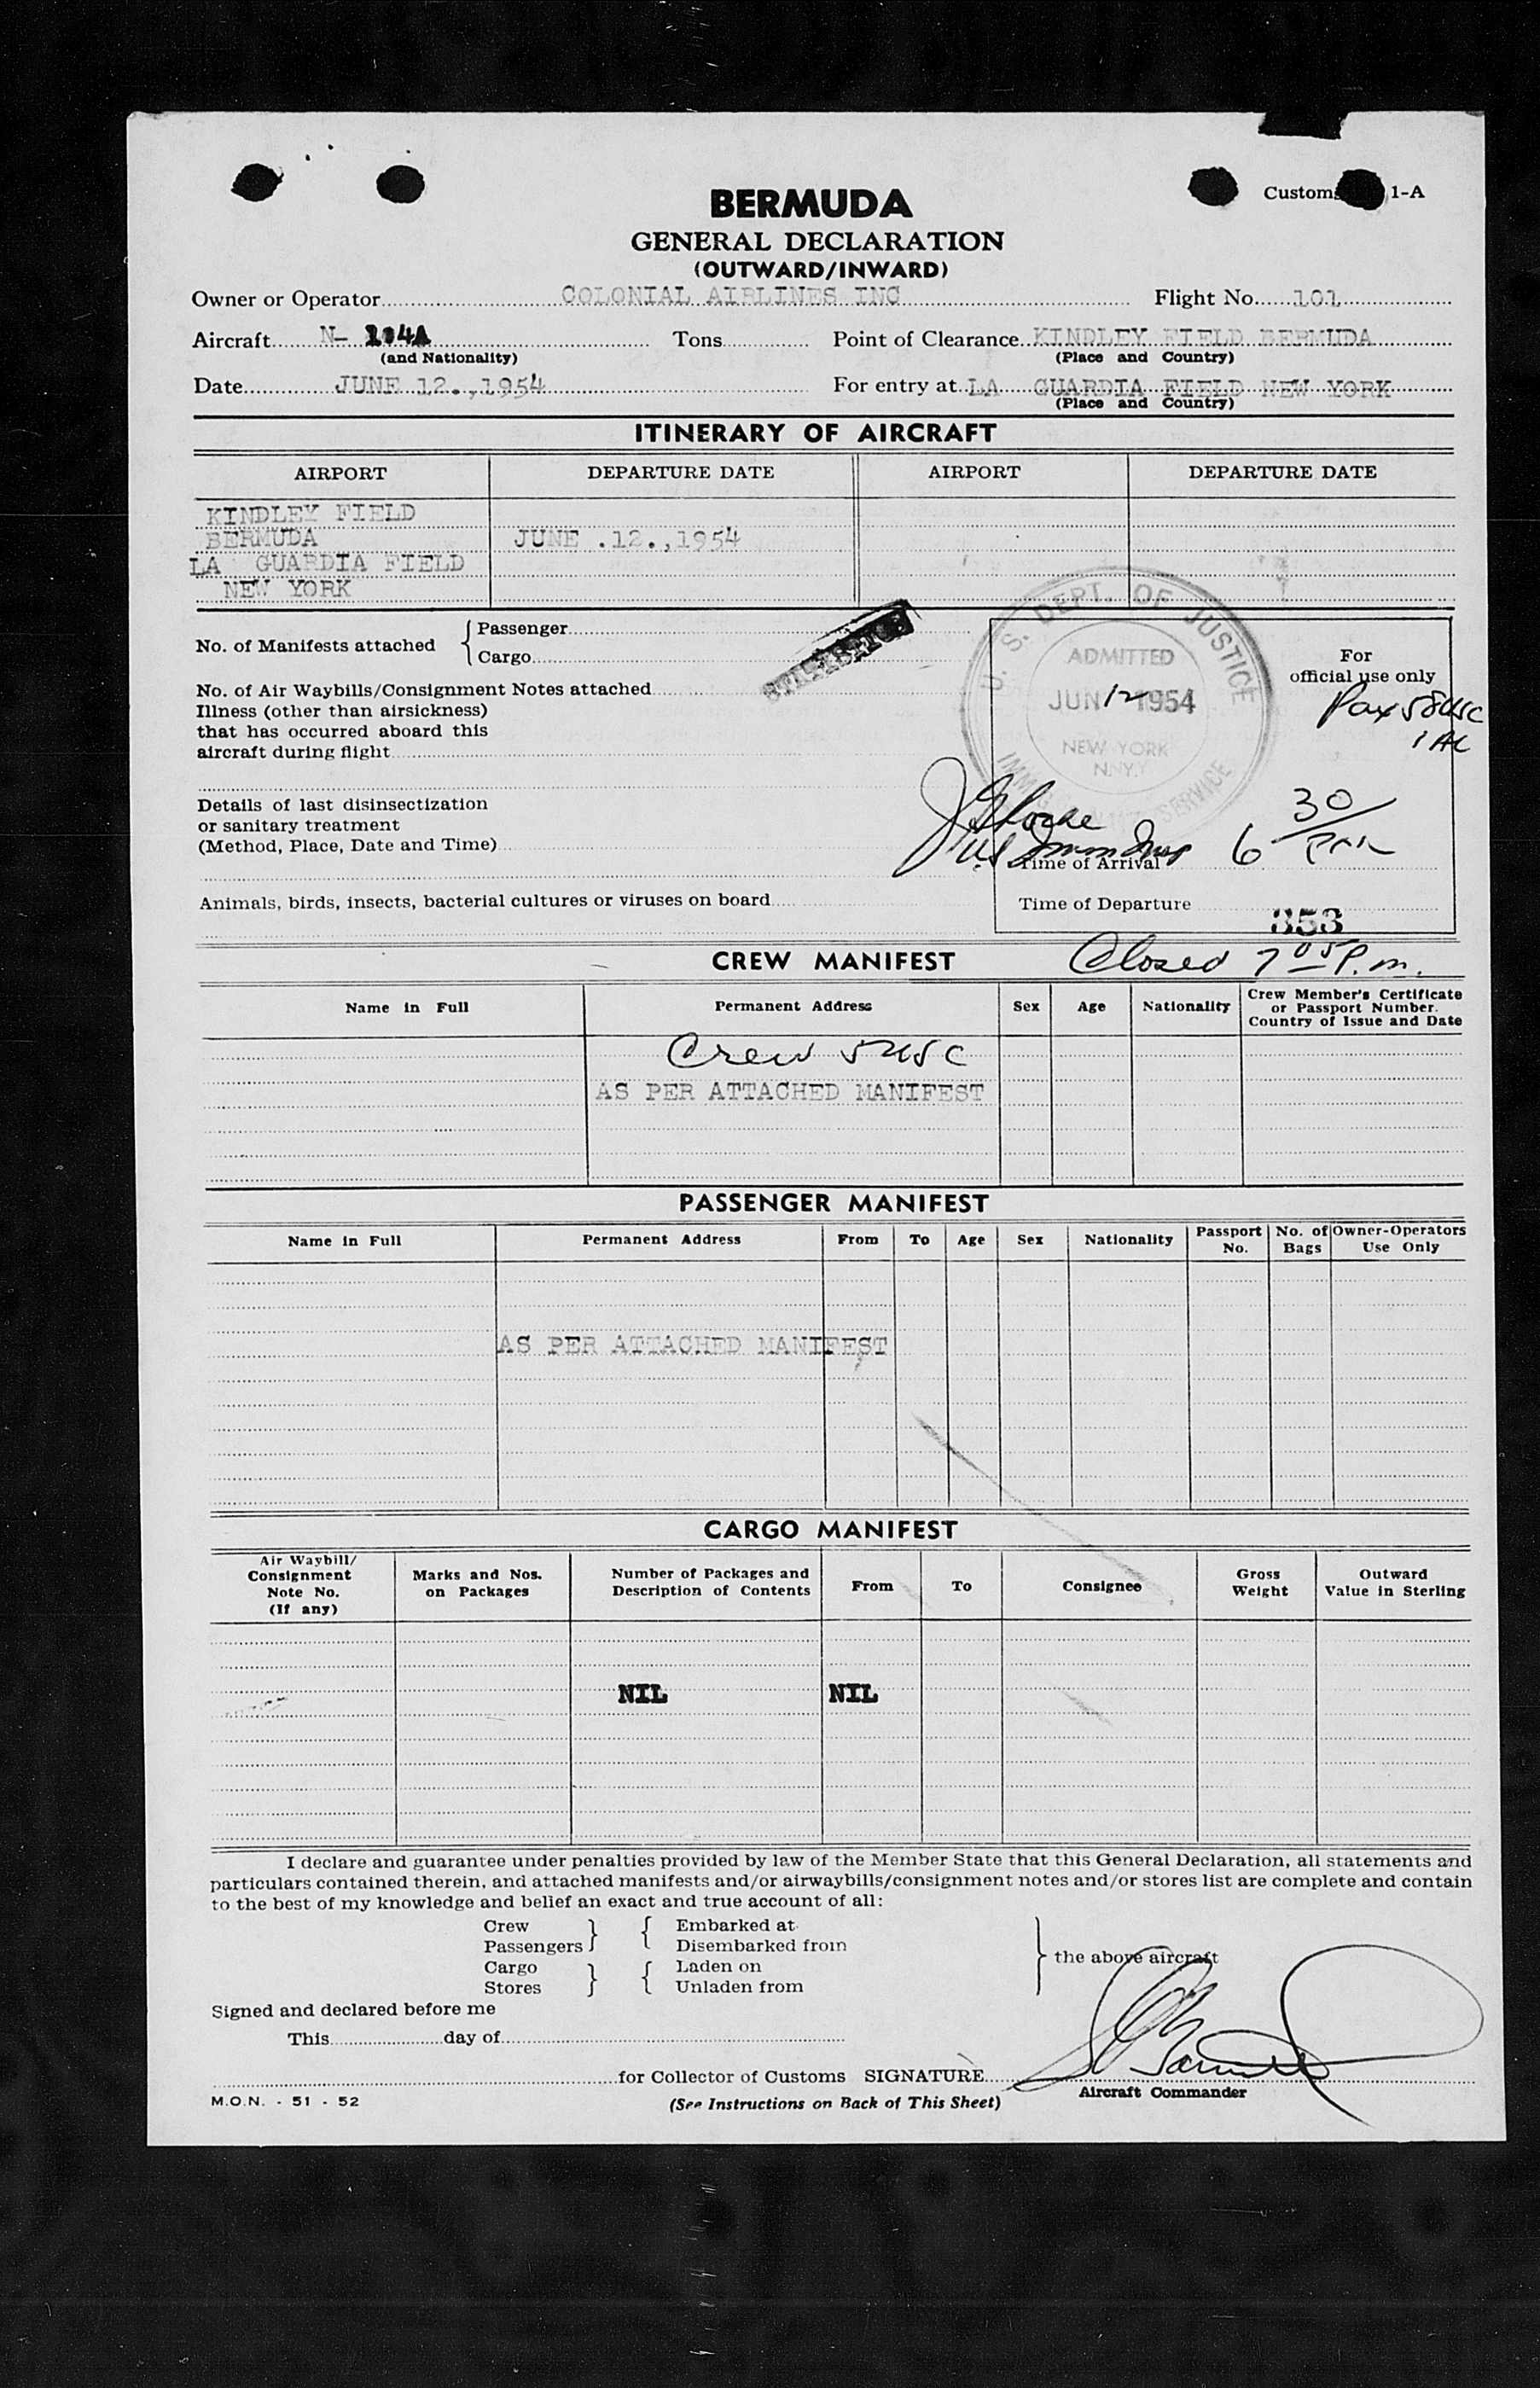 Customs 1-A
BERMUDA
GENERAL DECLARATION
(OUTWARD/INWARD)
Owner or Operator COLONIAL AIRLINES INC Flight No. 101
Aircraft N- 104A Tons Point of Clearance KINDLEY FIELD BERMUDA
(and Nationality) (Place and Country)
Date JUNE 12.,1954 For entry at LA GUARDIA FIELD NEW YORK
(Place and Country)
ITINERARY OF AIRCRAFT
AIRPORT DEPARTURE DATE AIRPORT DEPARTURE DATE
KINDLEY FIELD
BERMUDA JUNE .12.,1954
LA GUARDIA FIELD
NEW YORK
No. of Manifests attached { Passenger
Cargo
No. of Air Waybills/Consignment Notes attached
Illness (other than airsickness)
that has occurred aboard this
aircraft during flight
Details of last disinsectization
or sanitary treatment
(Method, Place, Date and Time)
Animals, birds, insects, bacterial cultures or viruses on board
U. S. DEPT. OF JUSTICE
ADMITTED
JUN 12 1954
NEW YORK
N.Y.
SERVICE
For
official use only
Pax 58 USC
1 AC
US Imm Insp
6 30/PM
Time of Arrival
Time of Departure
353
Closed 7 05 P.m.
CREW MANIFEST
Name in Full Permanent Address Sex Age Nationality Crew Member's Certificate
or Passport Number.
Country of Issue and Date
Crew 5 USC
AS PER ATTACHED MANIFEST
PASSENGER MANIFEST
Name in Full Permanent Address From To Age Sex Nationality Passport No. No. of Bags Owner-Operators Use Only
AS PER ATTACHED MANIFEST
CARGO MANIFEST
Air Waybill/ Consignment Note No. (If any) Marks and Nos. on Packages Number of Packages and Description of Contents From To Consignee Gross Weight Outward Value in Sterling
NIL NIL
I declare and guarantee under penalties provided by law of the Member State that this General Declaration, all statements and
particulars contained therein, and attached manifests and/or airwaybills/consignment notes and/or stores list are complete and contain
to the best of my knowledge and belief an exact and true account of all:
Crew } { Embarked at
Passengers Disembarked from
Cargo } { Laden on } the above aircraft
Stores Unladen from
Signed and declared before me
This day of
for Collector of Customs SIGNATURE
Aircraft Commander
M.O.N. - 51 - 52 (See Instructions on Back of This Sheet)